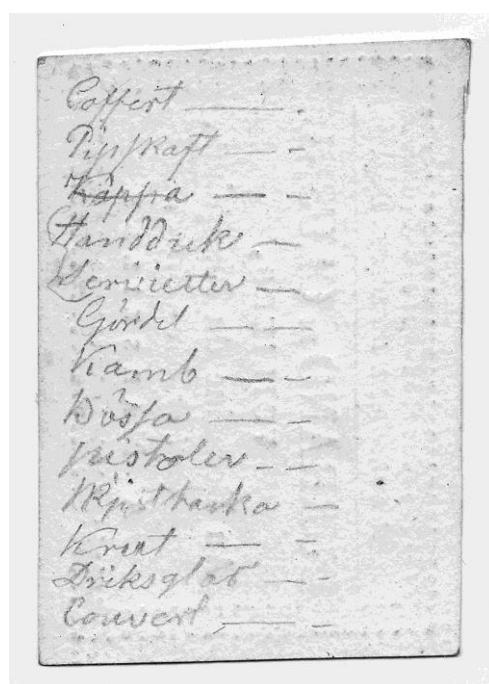 Coffert — .
Pipskaft — -
Kappa — -
Handduk —
Servietter —
Gördel — —
Kamb — -
Bössa — -
pistoler - -
— -
Krut — -
Driksglas — -
Couvert — -